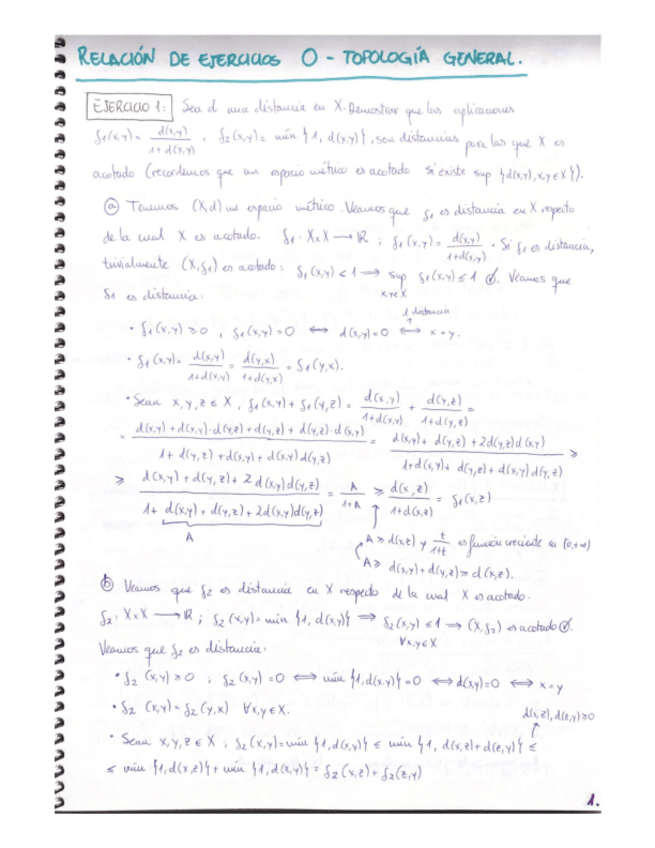 RELACIÓN DE EJERCICIOS 0 - TOPOLOGÍA GENERAL.
EJERCICIO 1: Sea d una distancia en X. Demostrar que las aplicaciones
δ₁(x,y) = d(x,y)/(1+d(x,y)), δ₂(x,y) = mín {1, d(x,y)}, son distancias para las que X es
acotado (recordemos que un espacio métrico es acotado si existe sup {d(x,y), x,y∈X}).
ⓐ Tenemos (X,d) un espacio métrico. Veamos que δ₁ es distancia en X respecto
de la cual X es acotado. δ₁: X×X ⟶ ℝ ; δ₁(x,y) = d(x,y)/(1+d(x,y)). Si δ₁ es distancia,
trivialmente (X,δ₁) es acotado: δ₁(x,y) < 1 ⟶ sup x,y∈X δ₁(x,y) ≤ 1 ☑. Veamos que
δ₁ es distancia:
d distancia
• δ₁(x,y) ≥ 0 , δ₁(x,y) = 0 ⟷ d(x,y) = 0 ⟷ x = y.
• δ₁(x,y) = d(x,y)/(1+d(x,y)) = d(y,x)/(1+d(y,x)) = δ₁(y,x).
• Sean x, y, z ∈ X, δ₁(x,y) + δ₁(y,z) = d(x,y)/(1+d(x,y)) + d(y,z)/(1+d(y,z)) =
= (d(x,y) + d(x,y)·d(y,z) + d(y,z) + d(y,z)·d(x,y))/(1 + d(y,z) + d(x,y) + d(x,y)d(y,z)) = (d(x,y) + d(y,z) + 2d(y,z)d(x,y))/(1+d(x,y) + d(y,z) + d(x,y)d(y,z)) ≥
≥ (d(x,y) + d(y,z) + 2d(x,y)d(y,z))/(1 + d(x,y) + d(y,z) + 2d(x,y)d(y,z)) = A/(1+A) ≥ d(x,z)/(1+d(x,z)) = δ₁(x,z)
A
A ≥ d(x,z) y t/(1+t) es función creciente en [0,+∞)
A ≥ d(x,y) + d(y,z) ≥ d(x,z).
ⓑ Veamos que δ₂ es distancia en X respecto de la cual X es acotado.
δ₂: X×X ⟶ ℝ ; δ₂(x,y) = mín {1, d(x,y)} ⟹ δ₂(x,y) ≤ 1 ⟹ (X,δ₂) es acotado ☑.
∀x,y∈X
Veamos que δ₂ es distancia:
• δ₂(x,y) ≥ 0 ; δ₂(x,y) = 0 ⟺ mín {1, d(x,y)} = 0 ⟺ d(x,y) = 0 ⟺ x = y
• δ₂(x,y) = δ₂(y,x) ∀x,y ∈ X.
d(x,z), d(z,y) ≥ 0
• Sean x, y, z ∈ X ; δ₂(x,y) = mín {1, d(x,y)} ≤ mín {1, d(x,z) + d(z,y)} ≤
≤ mín {1, d(x,z)} + mín {1, d(z,y)} = δ₂(x,z) + δ₂(z,y)
1.